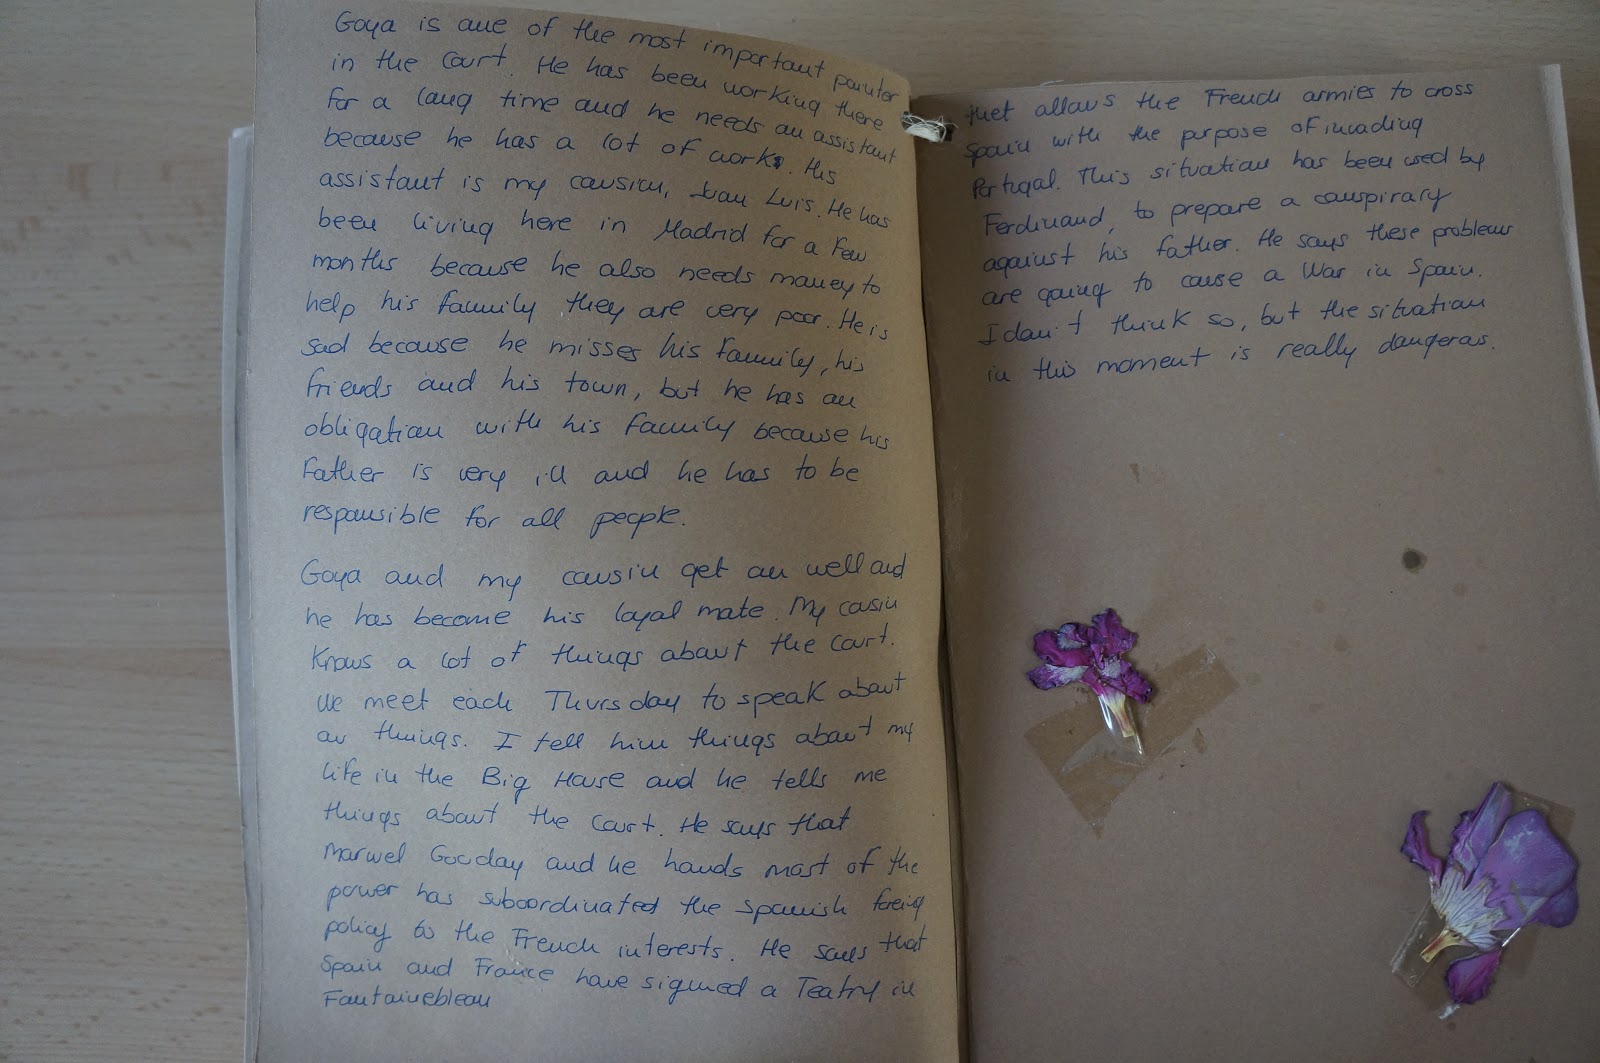 Goya is one of the most important painter
in the court. He has been working there
for a long time and he needs an assistant
because he has a lot of work. His
assistant is my cousin, Juan Luis. He has
been living here in Madrid for a few
months because he also needs money to
help his family they are very poor. He is
sad because he misses his family, his
friends and his town, but he has an
obligation with his family because his
father is very ill and he has to be
responsible for all people.
Goya and my cousin get on well and
he has become his loyal mate. My cousin
knows a lot of things about the court.
We meet each Thursday to speak about
our things. I tell him things about my
life in the Big House and he tells me
things about the court. He says that
Manuel Goday and he hands most of the
power has subcordinated the spanish foreing
policy to the French interests. He says that
Spain and France have signed a Teatry in
Fontainebleau
that allows the French armies to cross
Spain with the purpose of invading
Portugal. This situation has been used by
Ferdinand, to prepare a conspirary
against his father. He says these problems
are going to cause a War in Spain.
I don't think so, but the situation
in this moment is really dangeros.